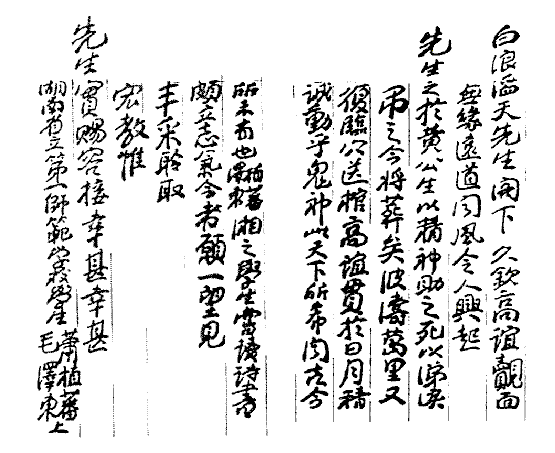 白浪滔天先生閣下久欽高誼覿面
無緣遠道聞風令人興起
先生之於黃公生以精神助之死以涕淚
吊之今將葬矣波濤萬里又
復臨穴送棺高誼貫於日月精
誠動乎鬼神此天下所希聞古今
所未有也植蕃澤東湘之學生嘗讀詩書
頗立志氣今者願一望見
丰采聆取
宏教惟
先生實賜容接幸甚幸甚
湖南省立第一師範學校學生蕭植蕃毛澤東上